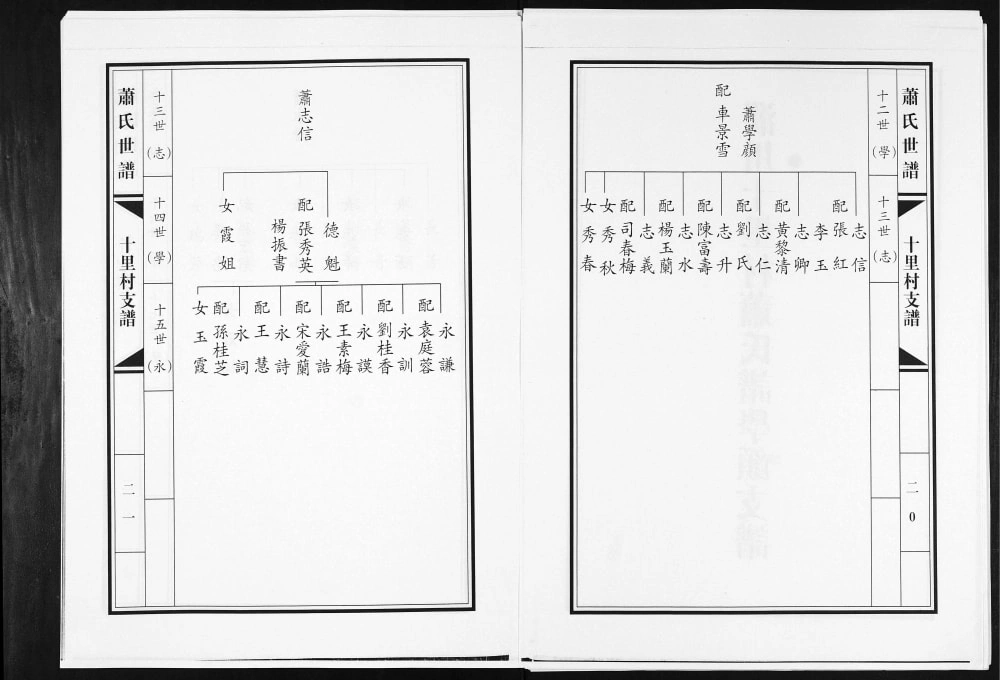 蕭氏世譜
十里村支譜
二0
十二世（學）
十三世（志）
蕭學顏
配 車景雪
志信
配 張紅
李玉
志卿
配 黃黎清
志仁
配 劉氏
志升
配 陳富壽
志水
配 楊玉蘭
志義
配 司春梅
女 秀秋
女 秀春
十三世（志）
十四世（學）
十五世（永）
蕭志信
德魁
配 張秀英
楊振書
女 霞姐
永謙
配 袁庭蓉
永訓
配 劉桂香
永謨
配 王素梅
永誥
配 宋愛蘭
永詩
配 王慧
永詞
配 孫桂芝
女 玉霞
蕭氏世譜
十里村支譜
二一